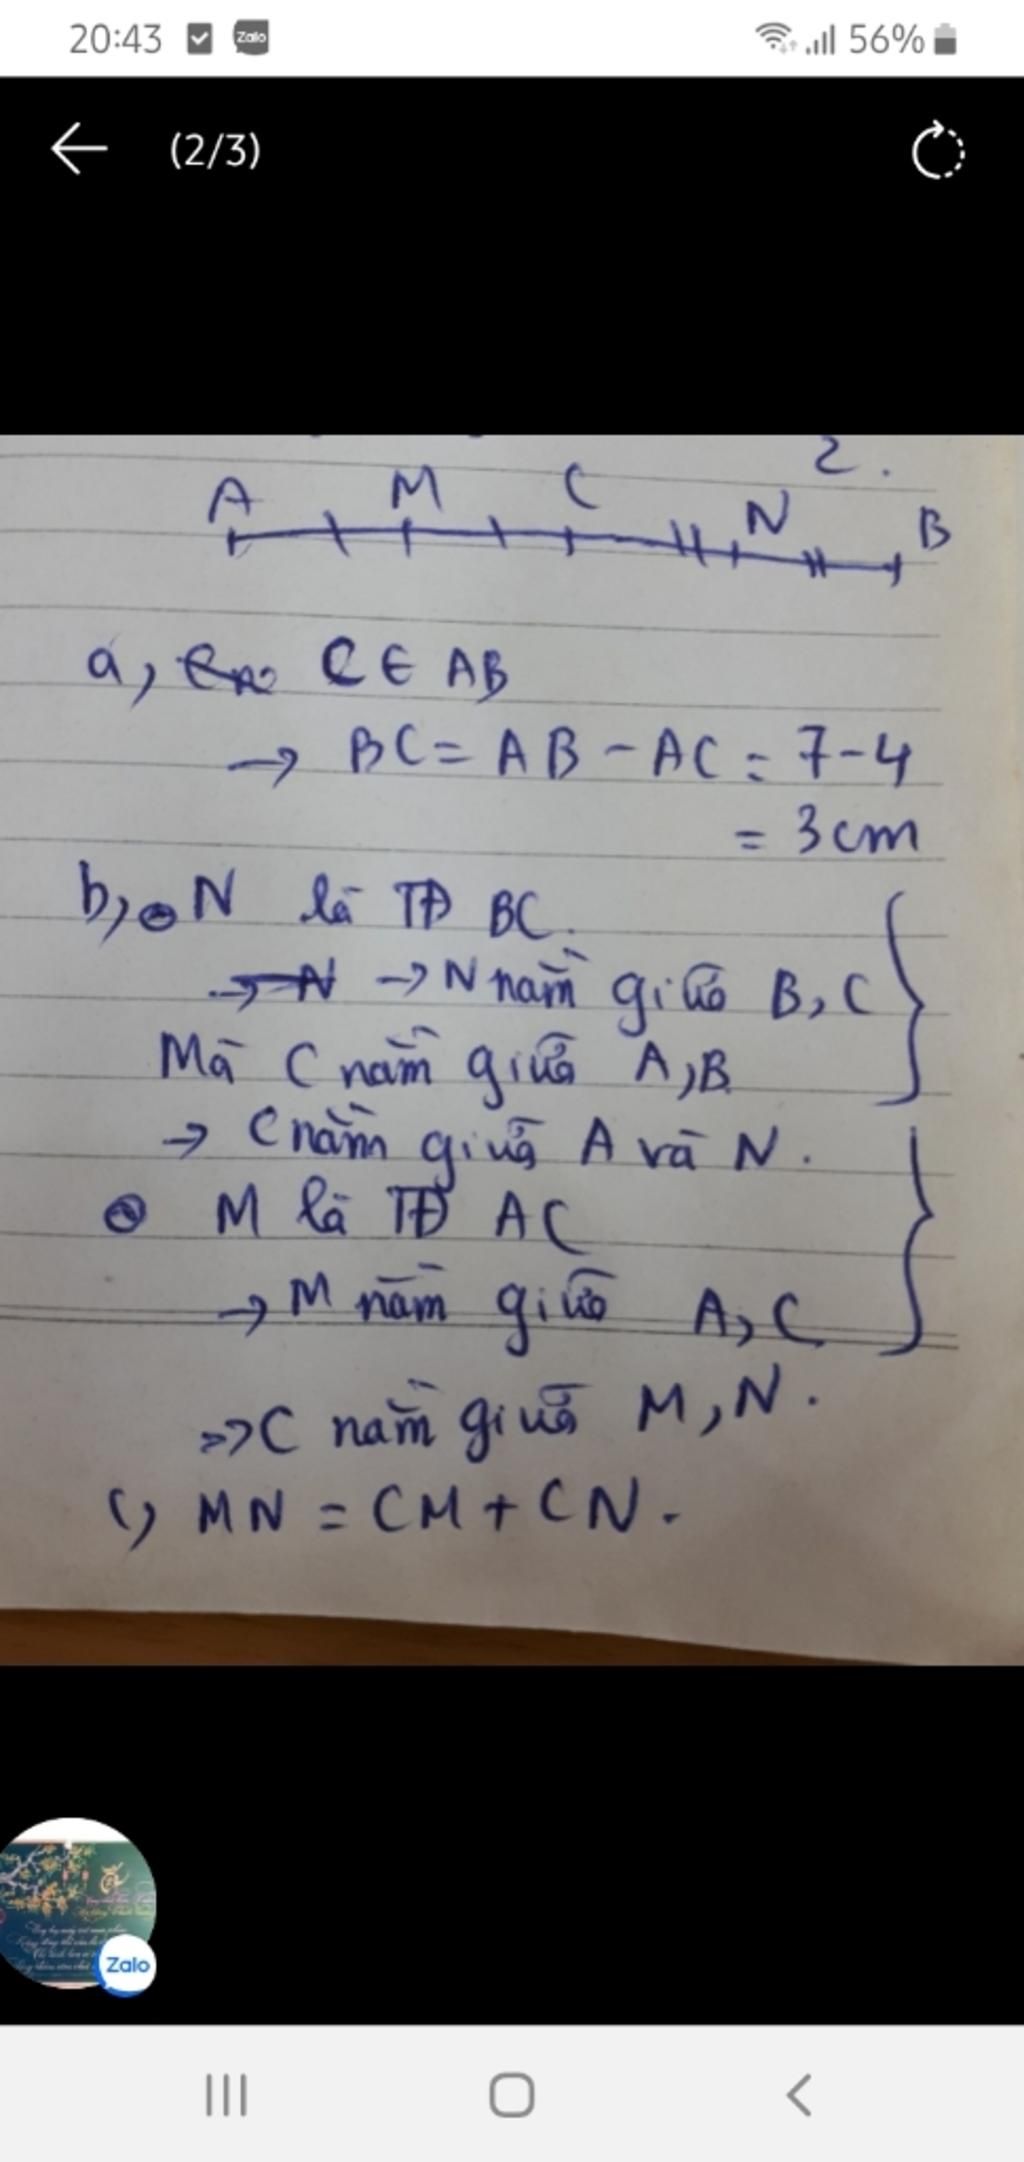 20:43 Zalo 56%
(2/3)
2.
A M C N B
a, C ∈ AB
→ BC = AB - AC = 7-4
= 3cm
b, N là TĐ BC.
→ N → N nằm giữa B, C
Mà C nằm giữa A, B
→ C nằm giữa A và N.
M là TĐ AC
→ M nằm giữa A, C
=> C nằm giữa M, N.
c, MN = CM + CN.
Zalo